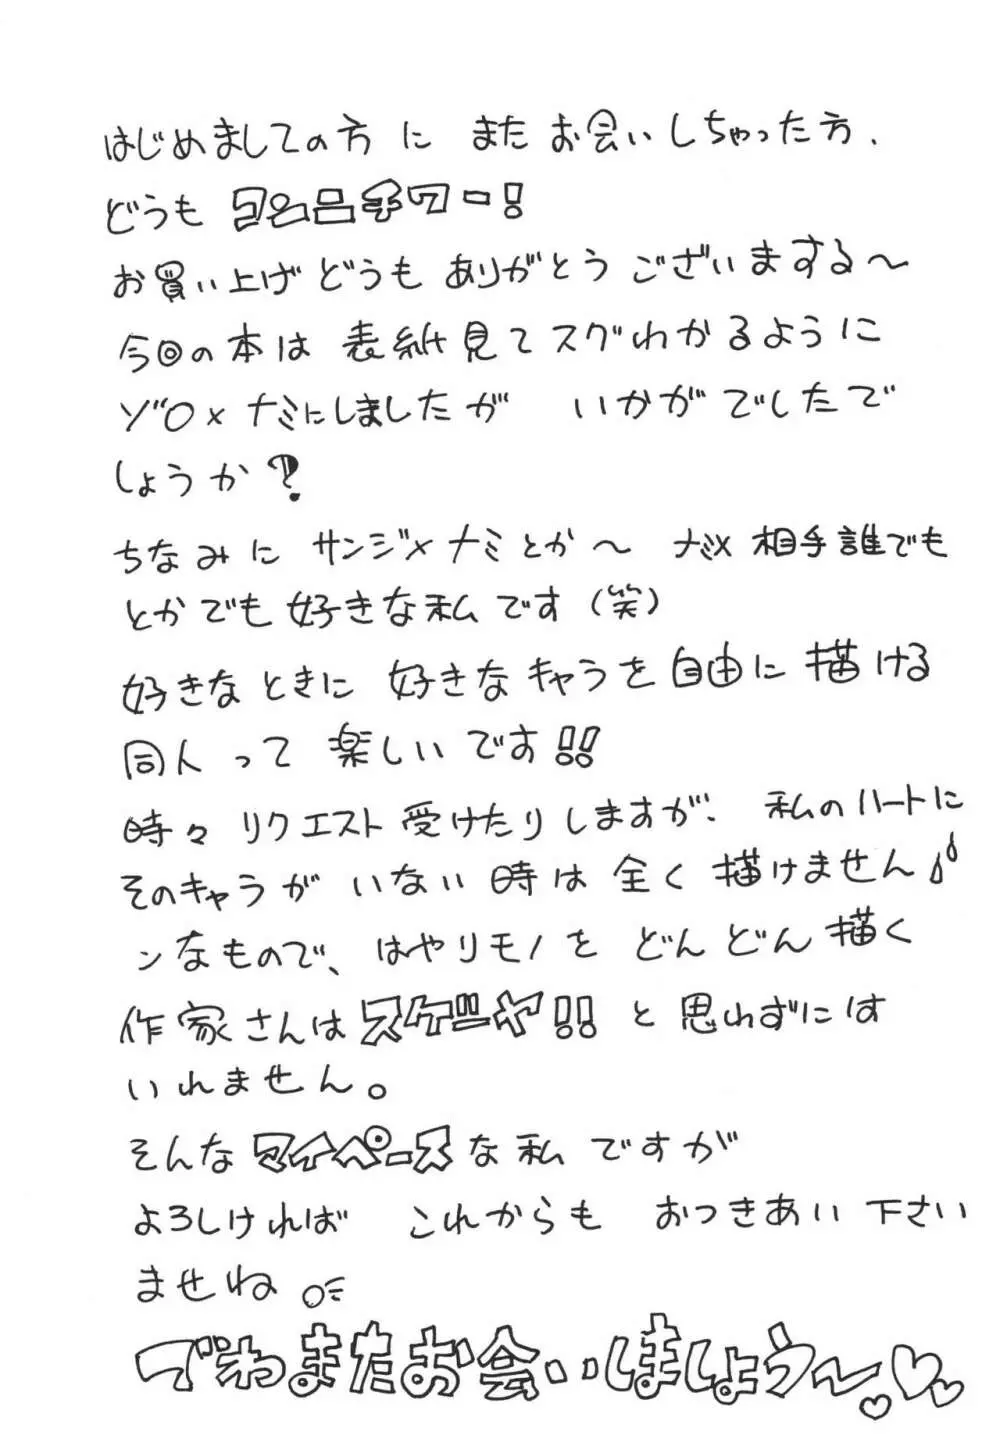 はじめましての方に またお会いしちゃった方、
どうも コンニチワー!
お買い上げどうもありがとうございまする〜
今回の本は 表紙見てスグわかるように
ゾロ×ナミにしましたが いかがでしたで
しょうか?
ちなみに サンジ×ナミとか〜 ナミ×相手誰でも
とかでも好きな私です(笑)
好きなときに 好きなキャラを自由に描ける
同人って 楽しいです!!
時々リクエスト受けたりしますが、私のハートに
そのキャラが いない時は 全く描けません
ンなもので、はやりモノを どんどん描く
作家さんはスゲーヤ!! と思わずには
いれません。
そんなマイペースな私ですが
よろしければ これからも おつきあい下さい
ませね
でわまたお会いしましょう〜♡♡♡